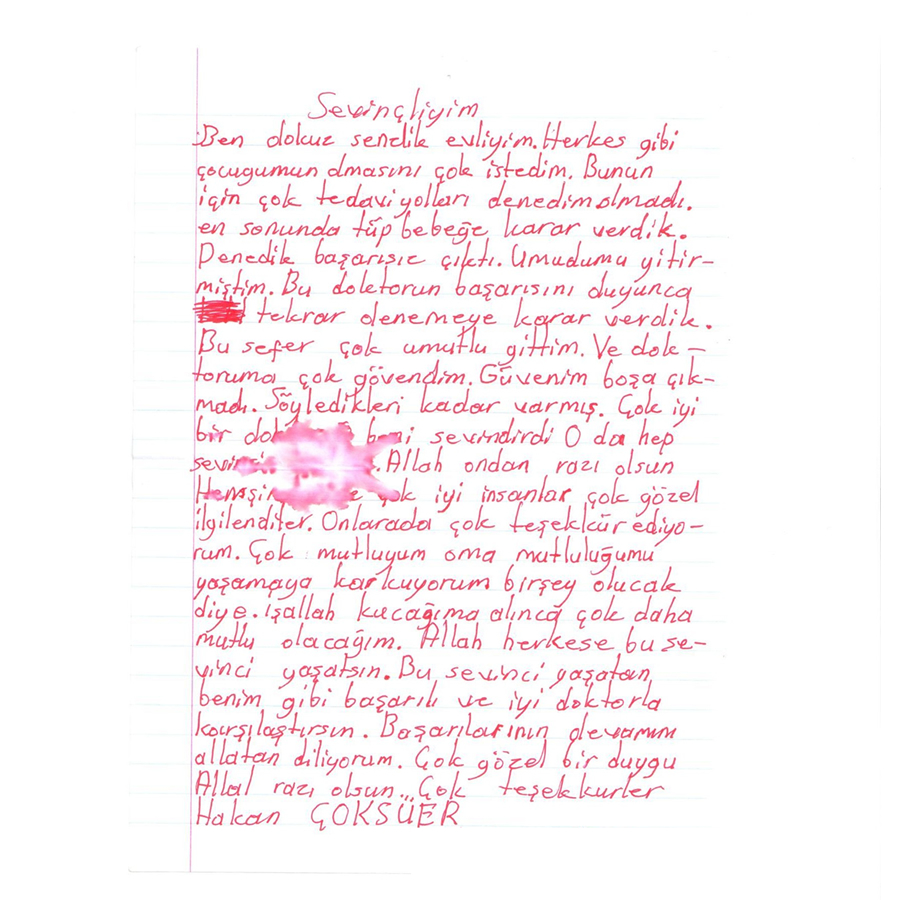 Sevinçliyim
Ben dokuz senelik evliyim. Herkes gibi
çocugumun olmasını çok istedim. Bunun
için çok tedavi yolları denedim olmadı.
en sonunda tüp bebeğe karar verdik.
Denedik başarısız çıktı. Umudumu yitir-
miştim. Bu doktorun başarısını duyunca
tekrar denemeye karar verdik.
Bu sefer çok umutlu gittim. Ve dok-
toruma çok gövendim. Güvenim boşa çık-
madı. Söyledikleri kadar varmış. Çok iyi
bir beni sevindirdi O da hep
. Allah ondan razı olsun
çok iyi insanlar çok gözel
ilgilendiler. Onlarada çok teşekkür ediyo-
rum. Çok mutluyum ama mutluluğumu
yaşamaya karkuyorum birşey olucak
diye. işallah kucağıma alınca çok daha
mutlu olacağım. Allah herkese bu se-
vinci yaşatsın. Bu sevinci yaşatan
benim gibi başarılı ve iyi doktorla
karşılaştırsın. Başarılarının devamını
allatan diliyorum. Çok gözel bir duygu
Allal razı olsun... Çok teşekkurler
Hakan GÖKSÜER